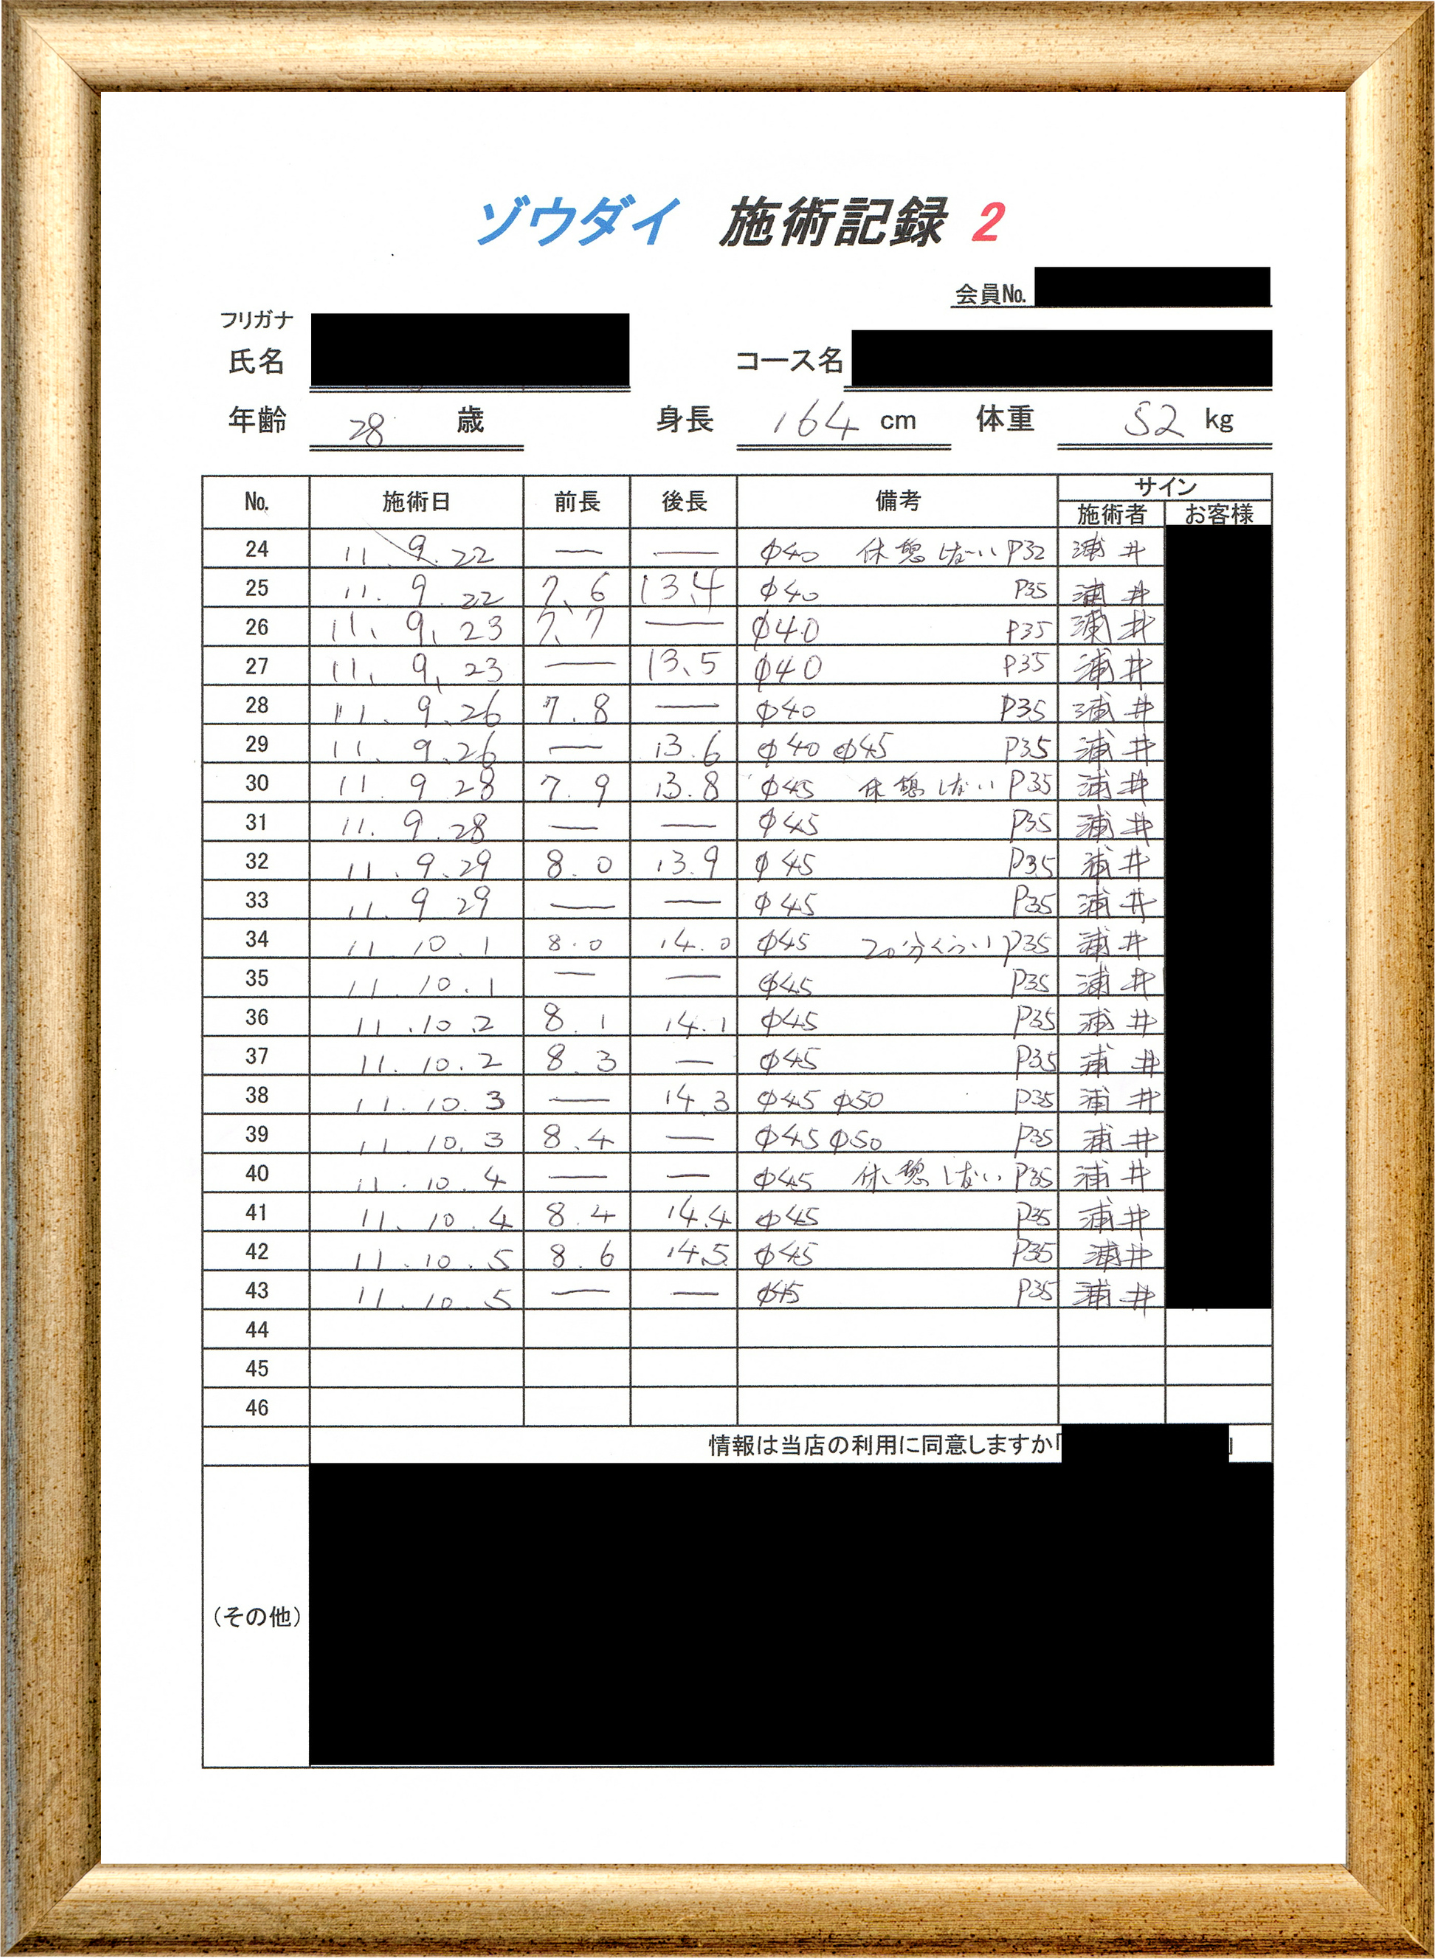 ゾウダイ 施術記録 2
会員No.
フリガナ
氏名 コース名
年齢 28 歳 身長 164 cm 体重 52 kg
No. 施術日 前長 後長 備考 サイン
施術者 お客様
24 11.9.22 — — φ40 休憩しない P32 浦井
25 11.9.22 7.6 13.4 φ40 P35 浦井
26 11.9.23 7.7 — φ40 P35 浦井
27 11.9.23 — 13.5 φ40 P35 浦井
28 11.9.26 7.8 — φ40 P35 浦井
29 11.9.26 — 13.6 φ40 φ45 P35 浦井
30 11.9.28 7.9 13.8 φ45 休憩しない P35 浦井
31 11.9.28 — — φ45 P35 浦井
32 11.9.29 8.0 13.9 φ45 P35 浦井
33 11.9.29 — — φ45 P35 浦井
34 11.10.1 8.0 14.0 φ45 20分くらい P35 浦井
35 11.10.1 — — φ45 P35 浦井
36 11.10.2 8.1 14.1 φ45 P35 浦井
37 11.10.2 8.3 — φ45 P35 浦井
38 11.10.3 — 14.3 φ45 φ50 P35 浦井
39 11.10.3 8.4 — φ45 φ50 P35 浦井
40 11.10.4 — — φ45 休憩しない P35 浦井
41 11.10.4 8.4 14.4 φ45 P35 浦井
42 11.10.5 8.6 14.5 φ45 P35 浦井
43 11.10.5 — — φ45 P35 浦井
44
45
46
情報は当店の利用に同意しますか「 」
(その他)